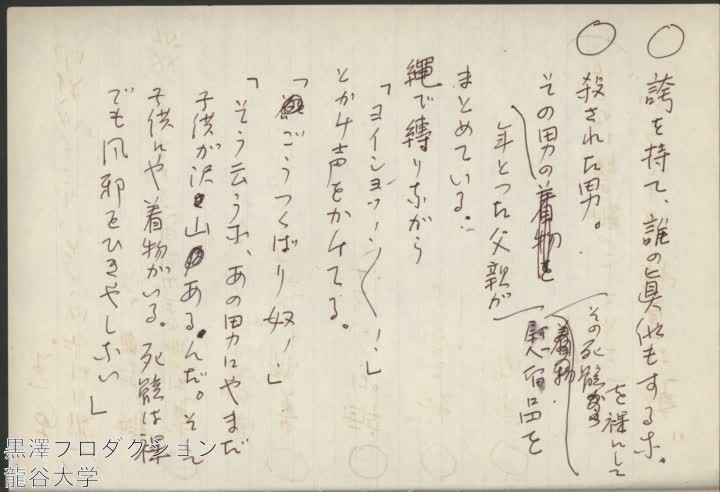 ○ 誇を持て、誰の眞似もするな。
○ 殺された男。
その死骸を裸にして
その男の着物を
年とった父親が
着物
まとめている。
縄で縛りながら
「ヨイショッ！〱！」
とかけ声をかけてる。
「ごうつくばり奴！」
「そう云うな、あの男にやまだ
子供が沢山あるんだ。そして
子供にや着物がいる。死骸は裸
でも風邪をひきやしない」
黒澤プロダクション
龍谷大学